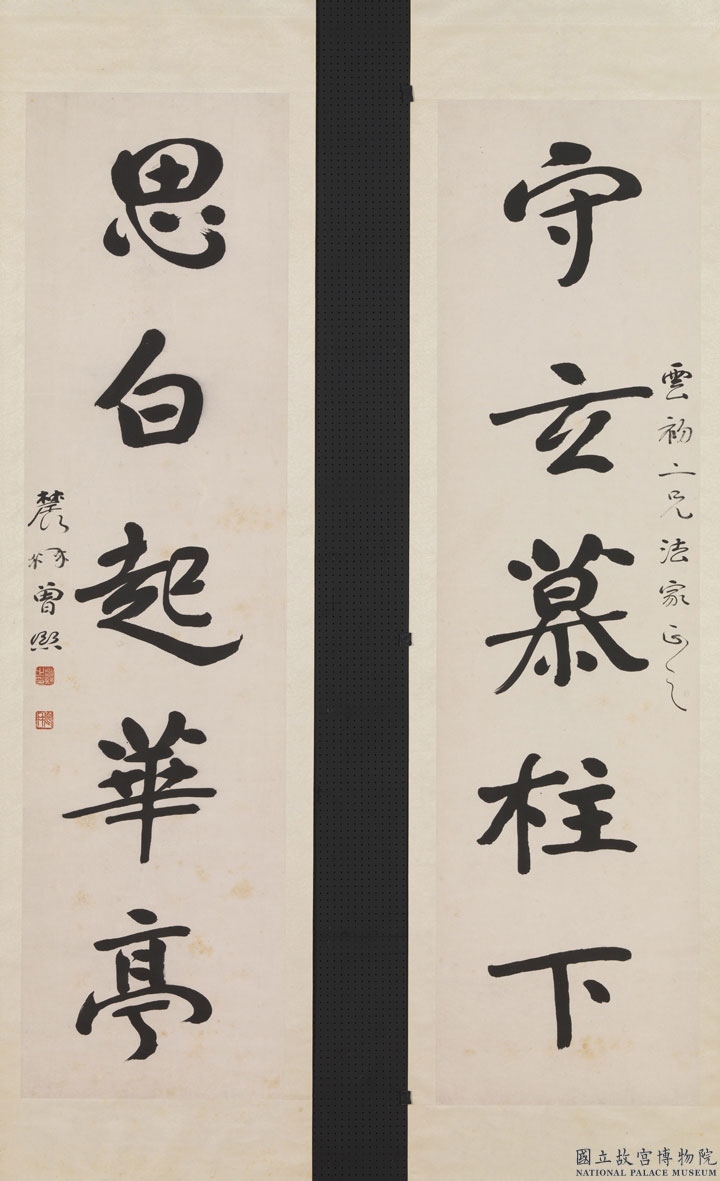 雲初二兄法家正之
守玄慕柱下
思白起華亭
農髯曾熙
國立故宮博物院
NATIONAL PALACE MUSEUM